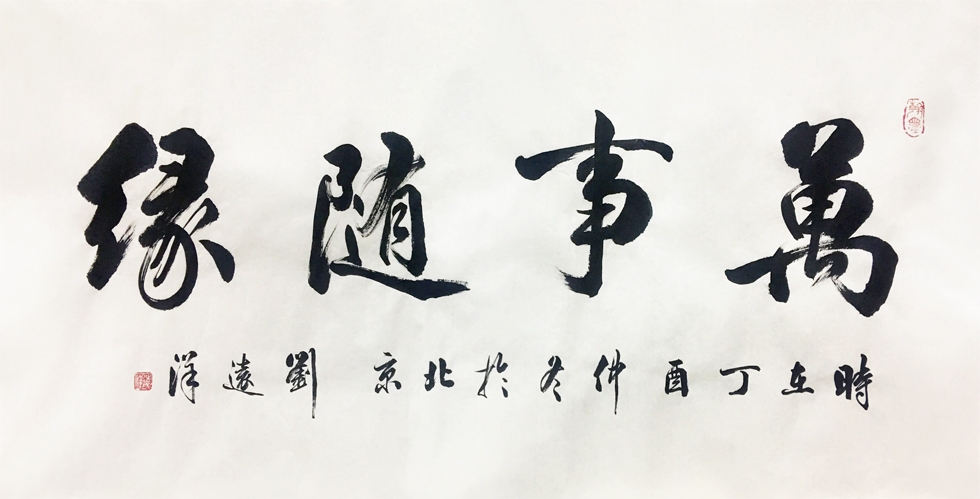 萬事随缘
時在丁酉仲冬於北京 劉遠洋